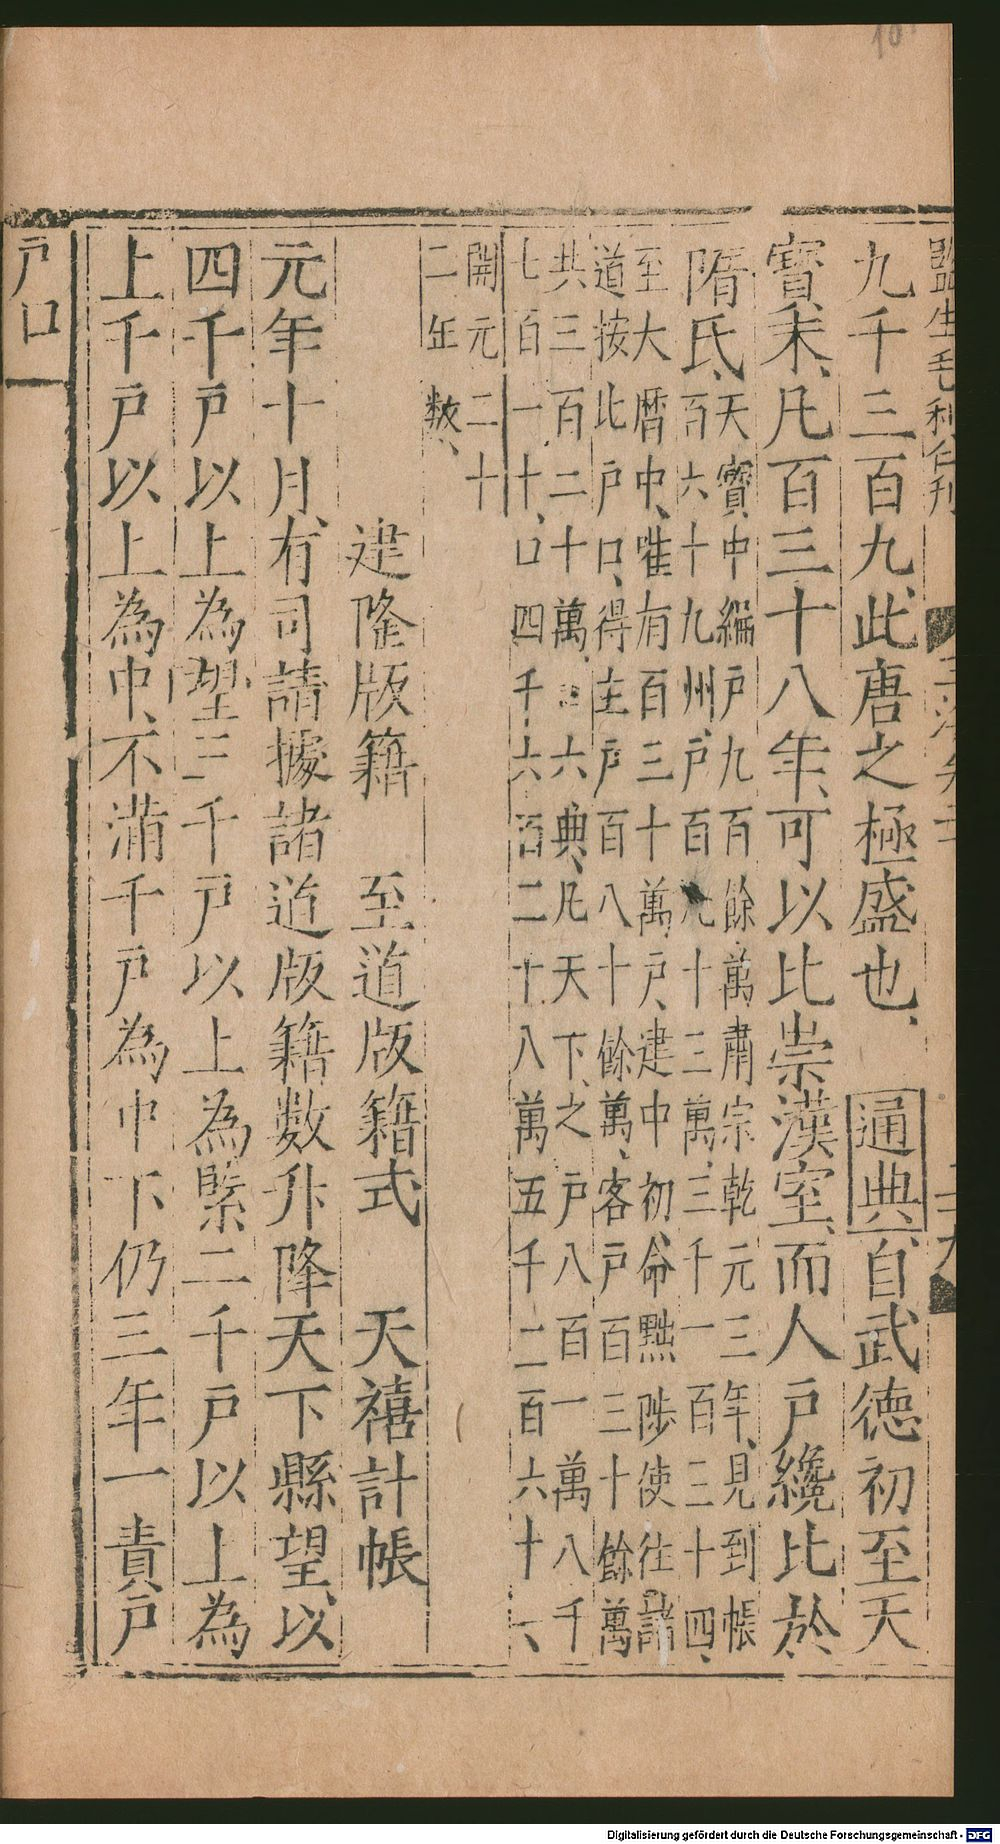 監生毛利仁刊
九千三百九此唐之極盛也、通典、自武德初至天
寶末、凡百三十八年、可以比崇漢室、而人戶纔比於
隋氏、
天寶中編戶九百餘萬肅宗乾元三年、見到帳
百六十九州、戶百九十三萬、三千一百三十四、
至大曆中、唯有百三十萬戶、建中初、命黜陟使往諸
道按比戶口、得主戶百八十餘萬、客戶百三十餘萬
共三百二十萬、六典、凡天下之戶八百一萬八千
七百一十、口四千六百二十八萬五千二百六十一、
開元二十
二年數、
建隆版籍 至道版籍式 天禧計帳
元年十月、有司請據諸道版籍數升降天下縣望、以
四千戶以上為望三千戶以上為緊二千戶以上為
上千戶以上為中、不滿千戶為中下仍三年一責戶
戶口
10
Digitalisierung gefördert durch die Deutsche Forschungsgemeinschaft - DFG